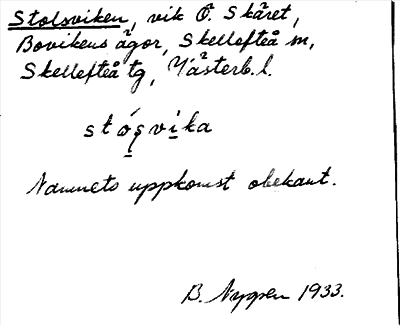 Stolsviken, vik Ö. Skäret,
Bovikens ägor, Skellefteå m,
Skellefteå tg, Västerb. l.
stó̱s̩vi̱ka
Namnets uppkomst obekant.
B. Nygren 1933.